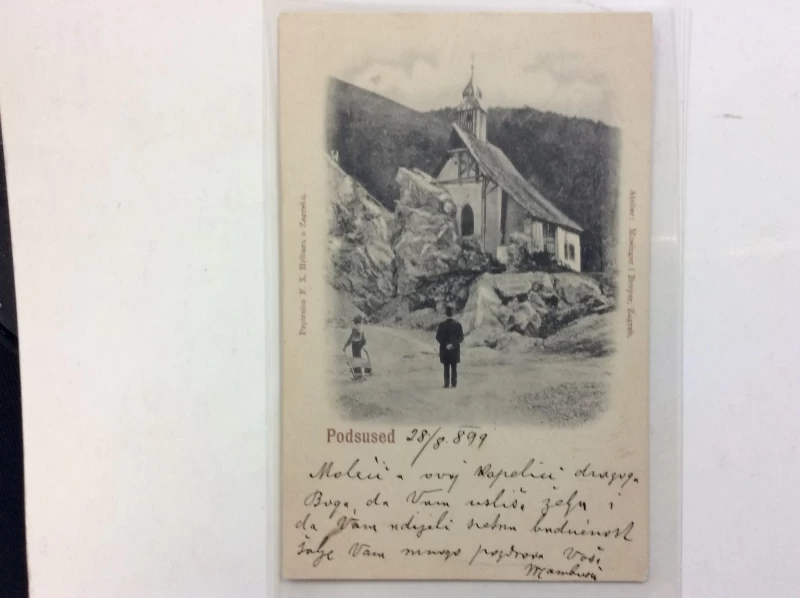 Papirnica F. X. Hribara u Zagrebu.
Atelier: Mosinger i Breyer, Zagreb.
Podsused 28/8. 899
Moleći u ovoj kapelici dragoga
Boga, da Vam usliša želju i
da Vam udijeli sretnu budućnost
šalje Vam mnogo pozdrava Vaši